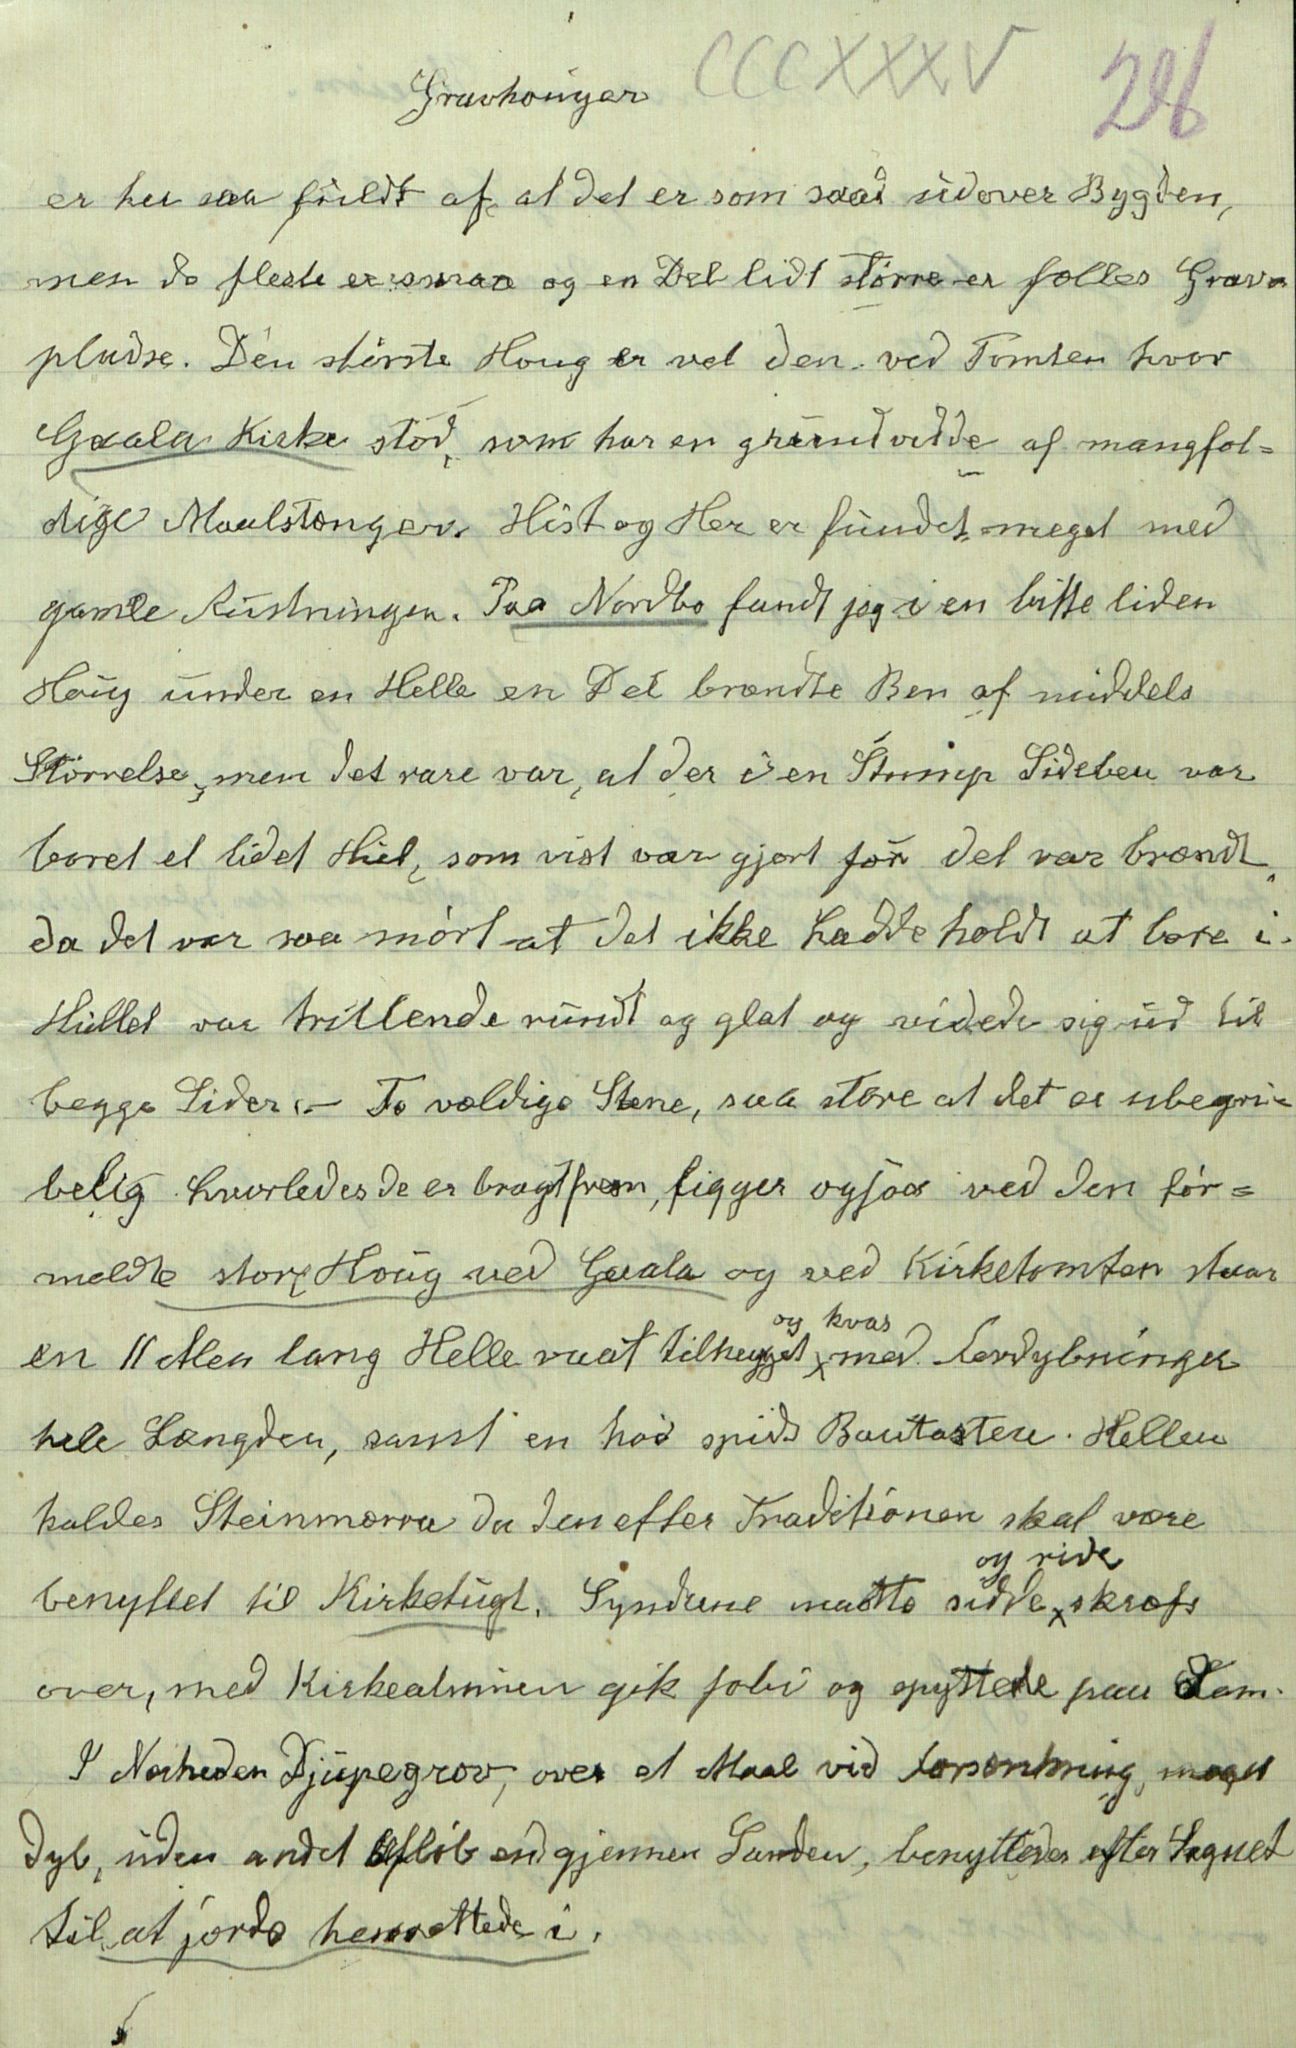 CCCXXXV
Gravhouger
er her saa fuldt af, at det er som saad udover Bygden,
men de fleste er smaa og en Del lidt större er fælles Grav-
pladse. Den störste Houg er vel den ved Tomten hvor
Gaala Kirke stod, som har en grundvidde af mangfol-
dige Maalstænger. Hist og Her er fundet meget med
gamle Rustninger. Paa Nordbo fandt jeg i en bitte liden
Houg under en Helle en Del brændte Ben af middels
Störrelse, men det rare var, at der i en Stump Sideben var
boret et lidet Hul, som vist var gjort för det var brændt,
da det var saa mört at det ikke hadde holdt at bore i.
Hullet var trillende rundt og glat og videde sig ud til
begge Sider. – To vældige Stene, saa store at det er ubegri-
belig hvorledes de er bragt frem, ligger ogsaa ved den för-
meldte store Houg ved Gaala og ved Kirketomten staar
en 11 Alen lang Helle raat tilhugget og kvas med Fordybninger
hele Længden, samt en höi spids Bautasten. Hellen
kaldes Steinmærra da den efter Traditionen skal være
benyttet til Kirketugt. Synderne maatte sidde og ride skræfs
over, med Kirkealmuen gik forbi og spyttede paa dem.
I Nærheden Djupegrov, over et Maal vid Forsænkning, meget
dyb, uden andet Aflöb end gjennem Sanden, benyttedes efter Sagnet
til at jorde henrettede i.